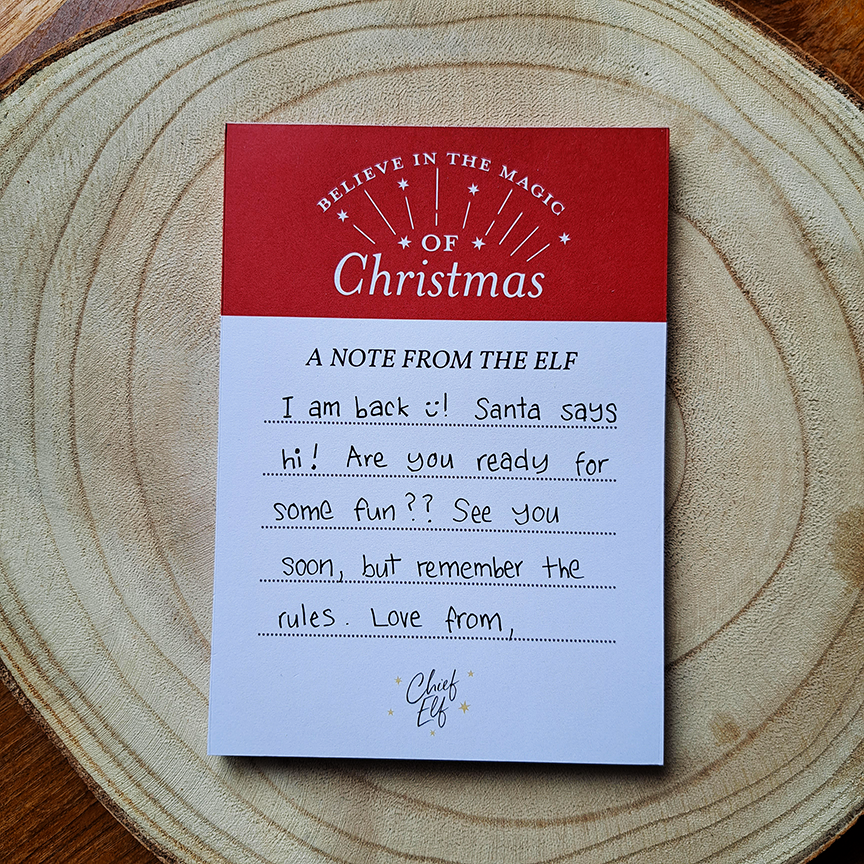 BELIEVE IN THE MAGIC
OF
Christmas
A NOTE FROM THE ELF
I am back :)! Santa says
hi! Are you ready for
some fun?? See you
soon, but remember the
rules. Love from,
Chief
Elf